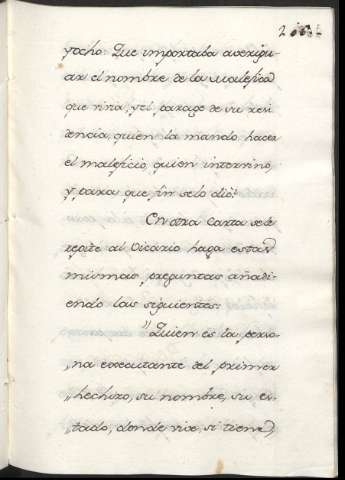 2
yocho. Que importaba averigu-
ar el nombre de la Malefica
que riña, y el parage de su resi-
dencia, quien la mando hacer
el maleficio, quien intervino,
y para que fin se lo dió.
En otra Carta se le
repite al Vicario haga estas
mismas preguntas añadi-
endo las siguientes:
"Quien es la perso-
"na executante del primer
"hechizo, su nombre, su es-
"tado, donde vive, si tiene